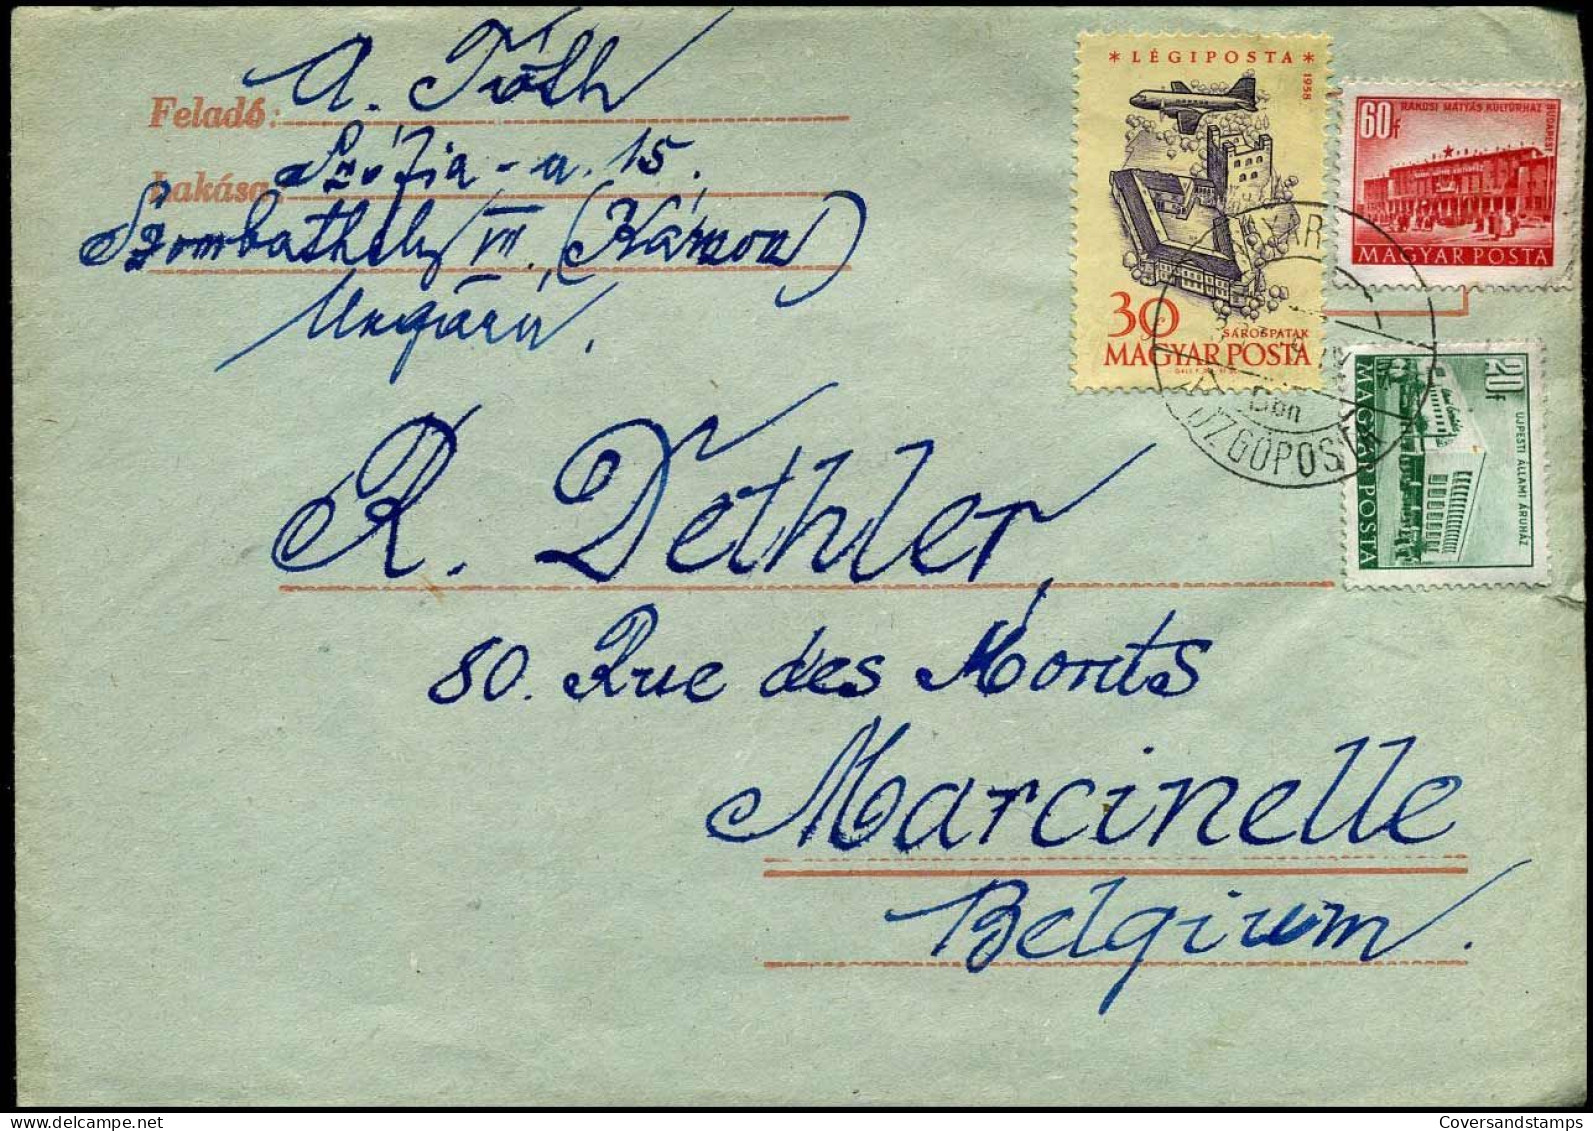 Feladó: A. Tóth
Lakása: Szófia-u. 15.
Szombathely VII. (Kámon)
Ungária.
* LÉGIPOSTA *
1958
30
SÁROSPATAK
MAGYAR POSTA
60f
RÁKOSI MÁTYÁS KULTÚRHÁZ
BUDAPEST
MAGYAR POSTA
20f
MAGYAR POSTA
ÚJPESTI ÁLLAMI ÁRUHÁZ
MOZGÓPOSTA
R. Dethler,
80. Rue des Monts
Marcinelle
Belgium.
Coversandstamps